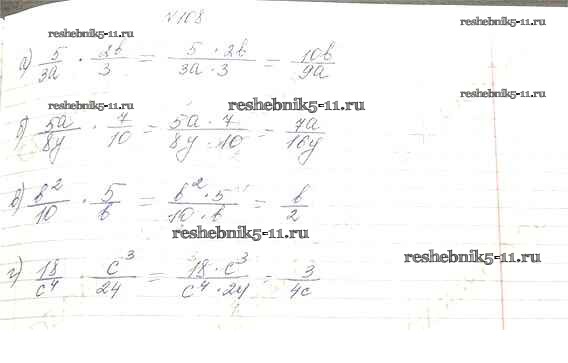 №108
reshebnik5-11.ru
reshebnik5-11.ru
а) 5/3a · 2b/3 = 5 · 2b/3a · 3 = 10b/9a
reshebnik5-11.ru
reshebnik5-11.ru
reshebnik5-11.ru
б) 5a/8y · 7/10 = 5a · 7/8y · 10 = 7a/16y
в) b²/10 · 5/b = b² · 5/10 · b = b/2
reshebnik5-11.ru
reshebnik5-11.ru
г) 18/c⁴ · c³/24 = 18 · c³/c⁴ · 24 = 3/4c